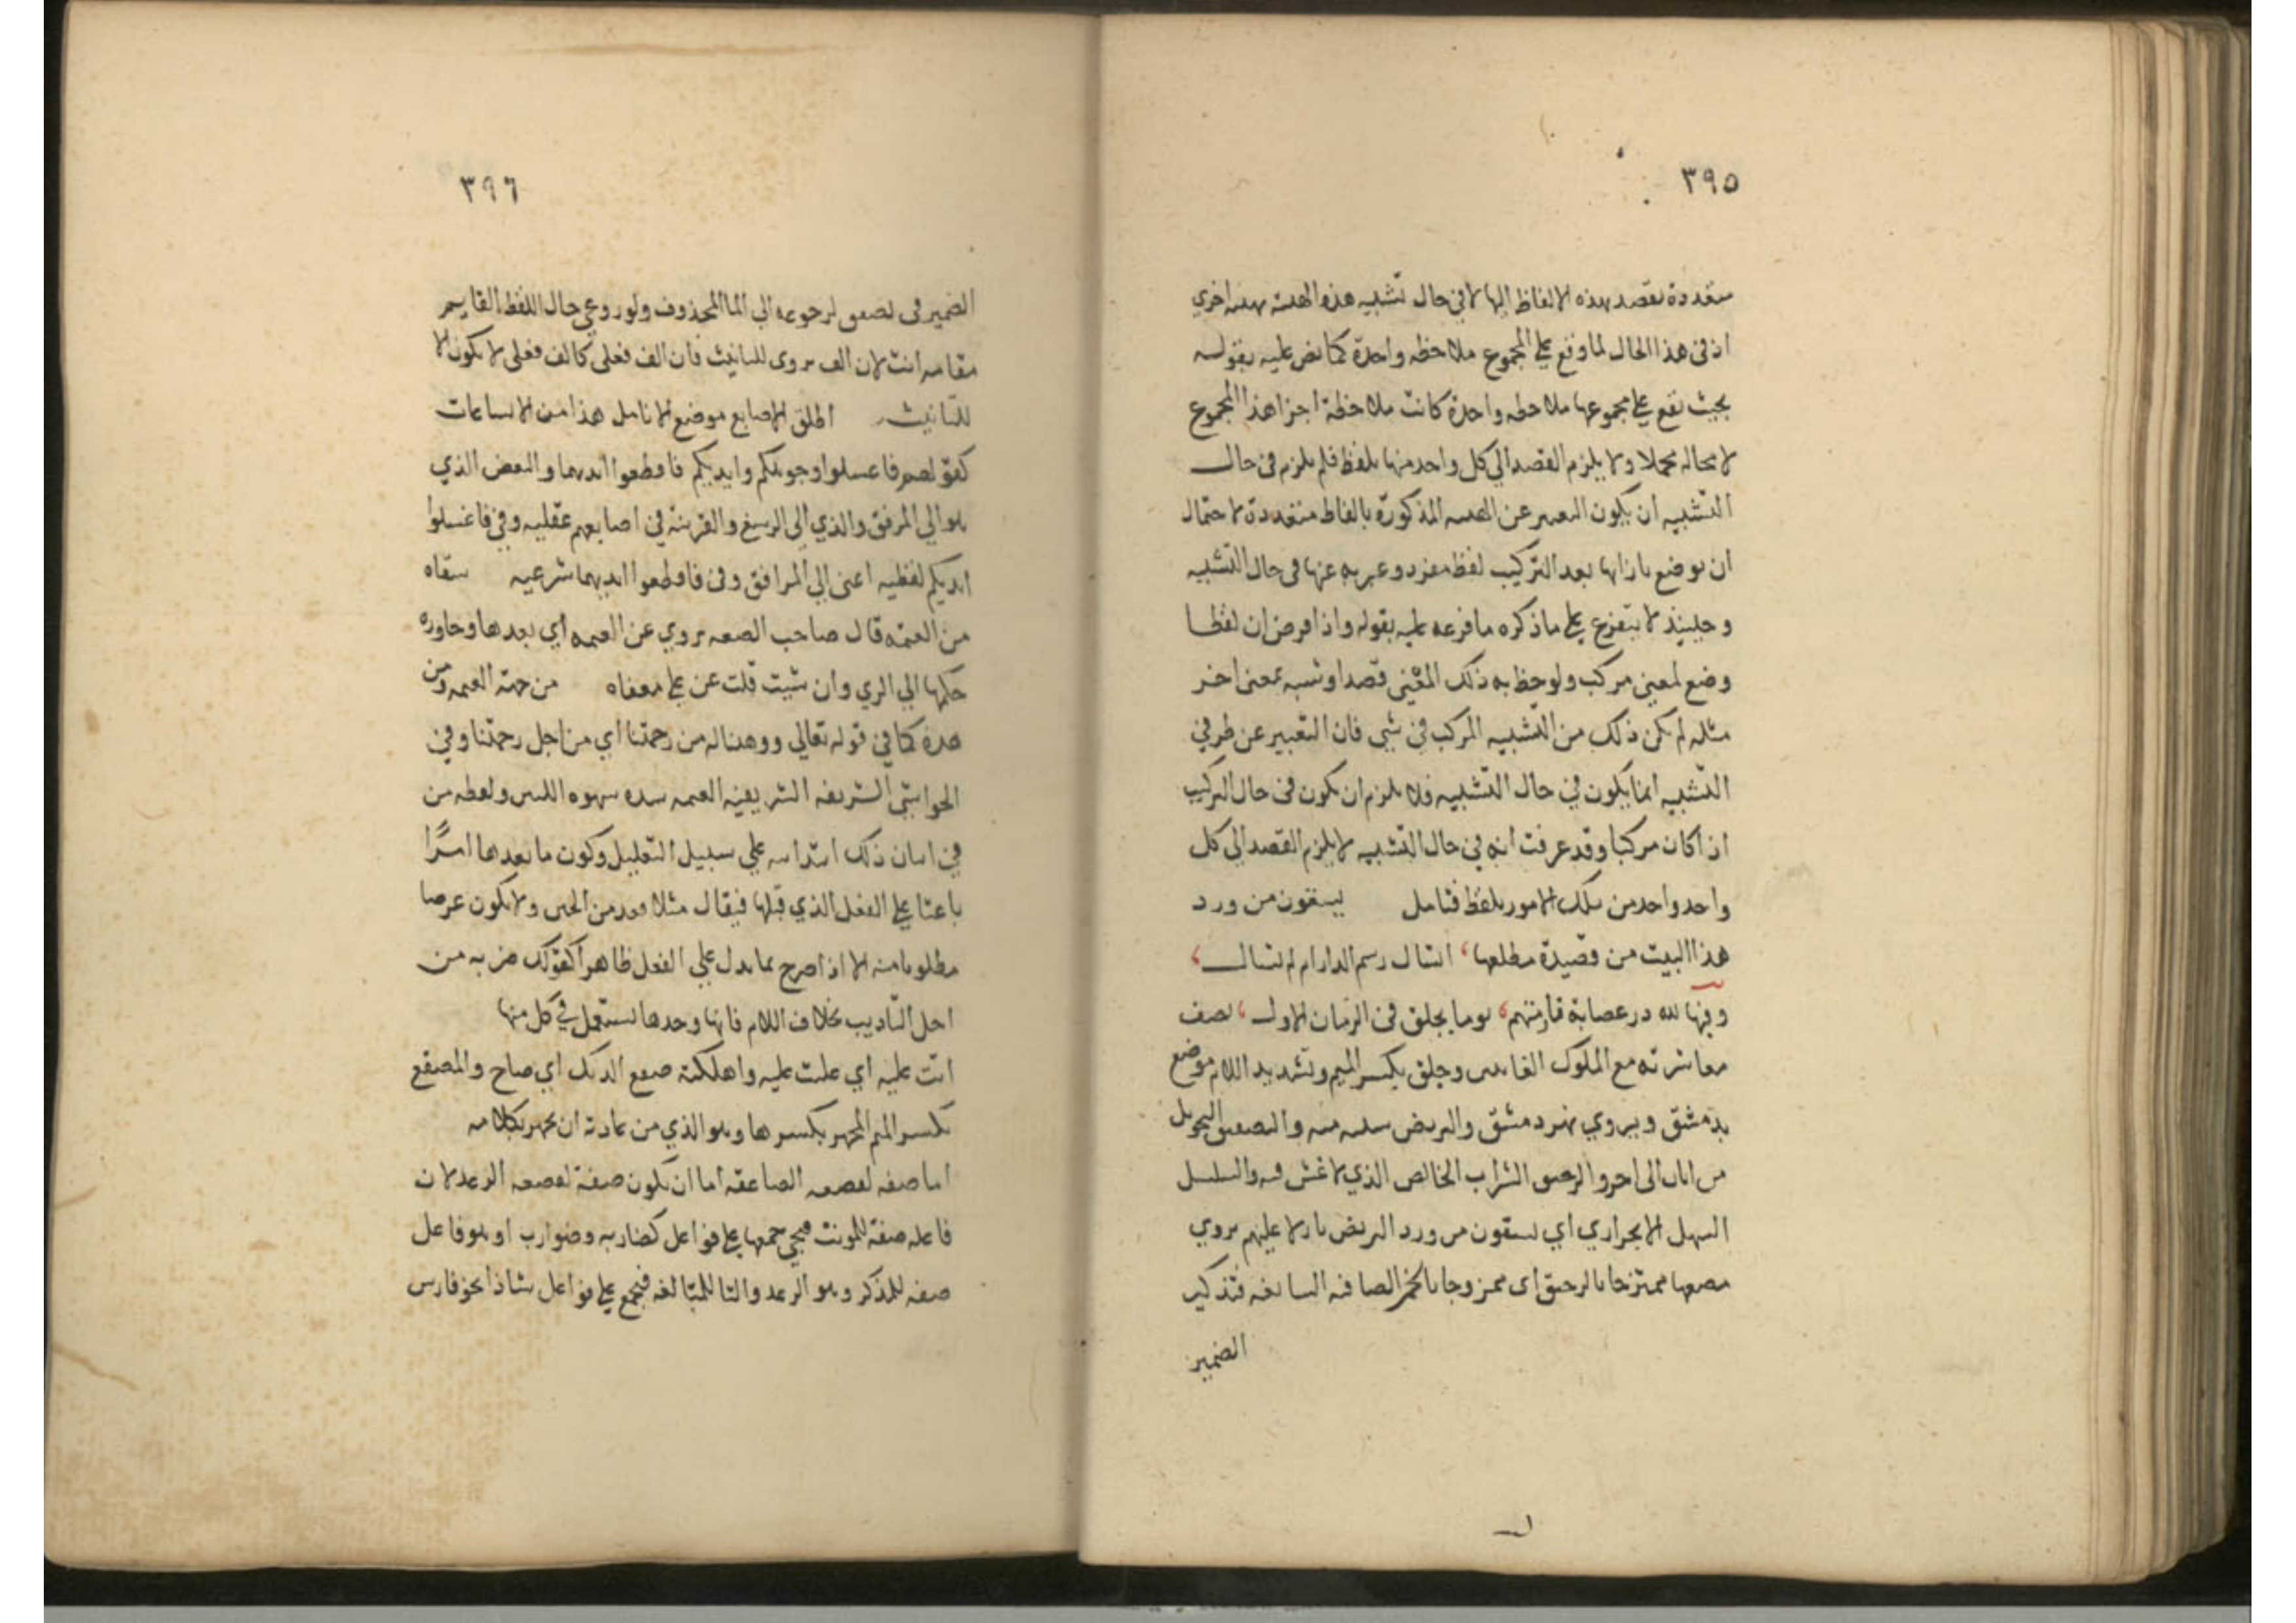 ٣٩٥
متعددة يقصد بهذه الالفاظ اليها لا في حال تشبيه هذه الهيئة بهيئة اخري
اذ في هذا الحال لما وقع علي المجموع ملاحظه واحدة كما نص عليه بقوله
بحيث تقع علي مجموعها ملاحظه واحدة كانت ملاحظة اجزا هذا المجموع
لا محاله مجملا ولا يلزم القصد الي كل واحد منها بلفظ فلم يلزم في حال
التشبيه ان يكون التعبير عن الهيئه المذكورة بالفاظ متعددة لاحتمال
ان يوضع بازايها بعد التركيب لفظ مفرد وعبر به عنها في حال التشبيه
وحينيذ لا يتفرع علي ما ذكره ما فرعه عليه بقوله واذا فرض ان لفظا
وضع لمعني مركب ولوحظ به ذلك المعني قصدا وشبه بمعني اخر
مثله لم يكن ذلك من التشبيه المركب في شي فان التعبير عن طرفي
التشبيه انما يكون في حال التشبيه فلا يلزم ان يكون في حال التركيب
اذا كان مركبا وقد عرفت انه في حال التشبيه لا يلزم القصد الي كل
واحد واحد من تلك الامور بلفظ فتامل يسقون من ورد
هذا البيت من قصيدة مطلعها، اسال رسم الدار ام لم تسال،
وفيها لله در عصابة نادمتهم، يوما بجلق في الزمان الاول، يصف
معاشرته مع الملوك وجلق بكسر الجيم وتشديد اللام موضع
بدمشق وبردي نهر دمشق والبريص منه والتصفيق التحويل
من اناء الي اخر والرحيق الشراب الخالص الذي لا غش فيه والسلسل
السهل الانجراري اي يسقون من ورد البريص نازلا عليهم بردي
مصفها ممتزجا بالرحيق اي ممزوجا بالخمر الصافيه السايغه فتذكير
الضمير
٣٩٦
الضمير في يصفق لرجوعه الي الما المحذوف ولو روعي حال اللفظ القايم
مقامه انث لان الف بردي للتانيث فان الف فعلي كالف فعلي لا يكون الا
للتانيث اطلق الاصابع موضع الانامل هذا من الاتساعات
كقولهم فاغسلوا وجوهكم وايديكم فاقطعوا ايديهما والبعض الذي
هو الي المرفق والذي الي الرسغ والقرينة في اصابعهم عقليه وفي فاغسلوا
ايديكم لفظيه اعني الي المرافق وفي فاقطعوا ايديهما شرعيه سقاه
من العيمه قال صاحب يروي عن العيمه اي بعدها وجاوزه
حكمها الي الري وان شيت قلت عن علي معناه من جهة العيمه ومن
هذه كما في قوله تعالي ووهبنا له من رحمتنا اي من اجل رحمتنا وفي
الحواشي الشريفه الشريفية العيمه شده شهوه اللبن ولفظه من
في اتيان ذلك ابتدائيه علي سبيل التعليل وكون ما بعدها امرًا
باعثا علي الفعل الذي قبلها فيقال مثلا قعد من الجبن ولا يكون غرضا
مطلوبا منه الا اذا صرح بما يدل علي الفعل ظاهرا كقولك ضربه من
اجل التاديب بخلاف اللام فانها وحدها تستعمل في كل منها
اتت عليه اي علت عليه واهلكته صقع الديك اي صاح والمصقع
بكسر الميم المجهر بكسرها وهو الذي من عادته ان يجهر بكلامه
اما صفه لقصفه الصاعقه اما ان يكون صفة لقصفه الرعد لان
فاعله صفة للمونث فيجي جمعها علي فواعل كضاربه وضوارب او هو فاعل
صفه للمذكر وهو الرعد والتا للمبالغه فيجمع علي فواعل شاذا نحو فارس